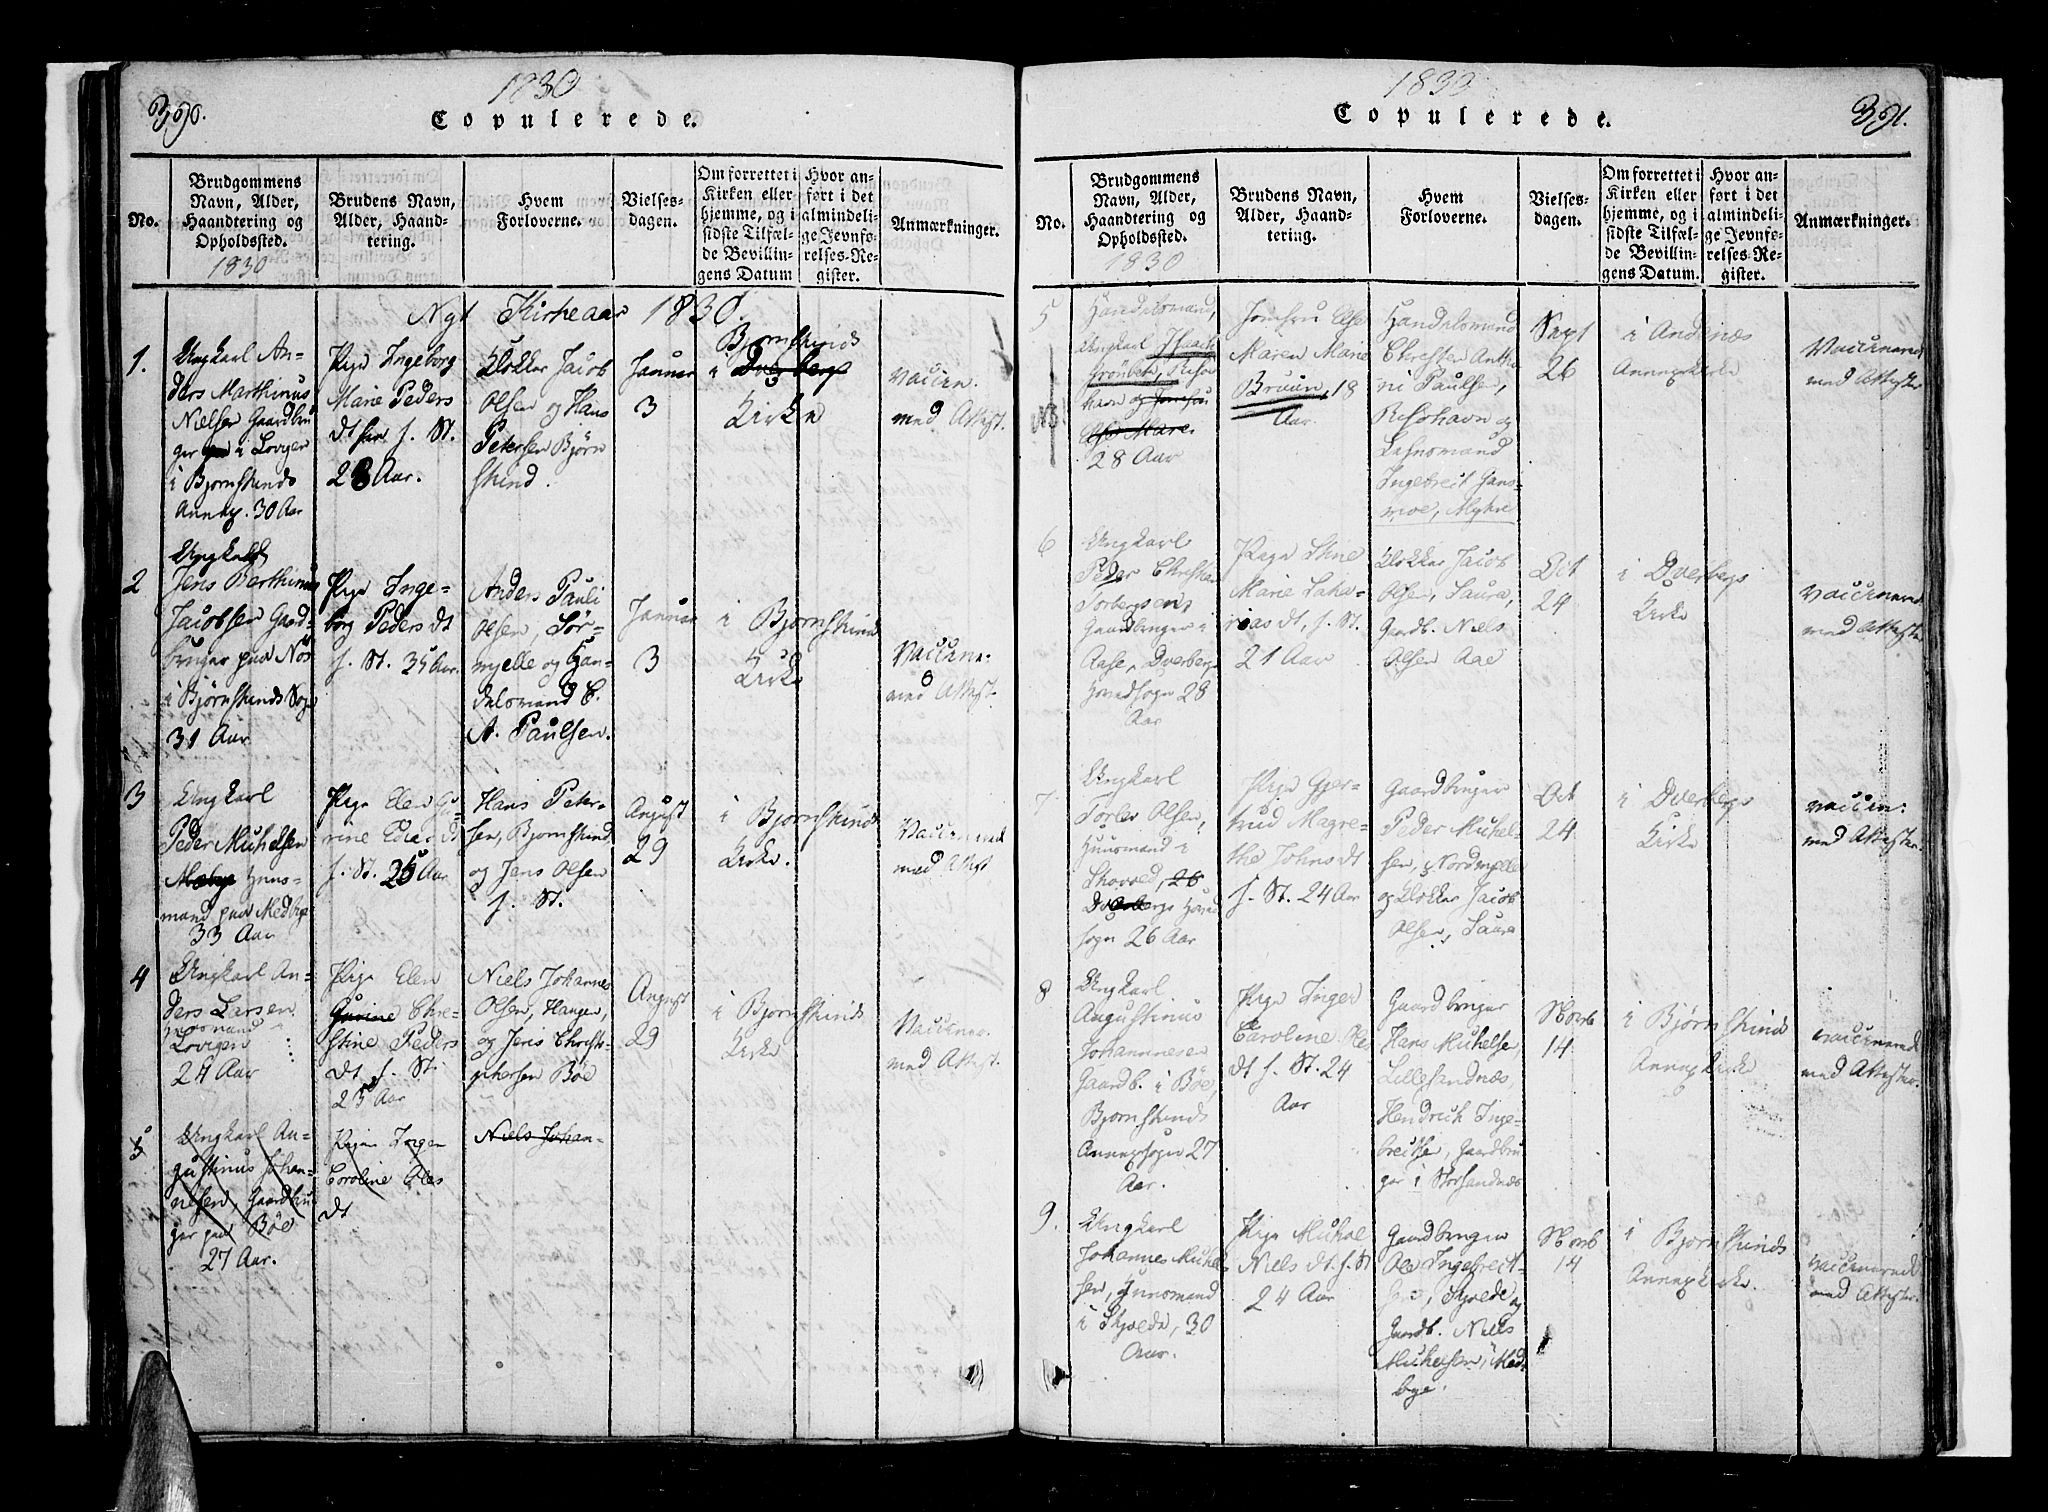 390.
1830
Copulerede.
No.
Brudgommens
Navn, Alder,
Haandtering og
Opholdssted.
1830
Brudens Navn,
Alder, Haand-
tering.
Hvem
Forloverne.
Vielses-
dagen.
Om forrettet i
Kirken eller
hjemme, og i
sidste Tilfæl-
de Bevillin-
gens Datum
Hvor an-
ført i det
almindeli-
ge Jevnfø-
relses-Re-
gister.
Anmærkninger.
Nyt Kirkeaar 1830.
1.
Ungkarl An-
ders Marthinus
Nielsen Gaardbru
ger i Lovigen
i Bjornskinds
Annex. 30 Aar
Pige Ingeborg
Marie Peders
dt f. St.
28 Aar.
Klokker Jacob
Olsen og Hans
Petersen Bjørn
skind.
Januar
3
Bjornskinds
i Dverbergs
Kirke
vaccin.
med Attest.
2
Ungkarl
Jens Berthinus
Jacobsen Gaard-
bruger paa Nos
i Bjørnskinds Sogn
31 Aar
Pige Inge-
borg Peders dt
f. St. 35 Aar.
Anders Pauli
Olsen, Sør-
myelle og Han-
delsmand C.
A. Paulsen.
Januar
3
i Bjornskinds
Kirke
Vaccine.
med Attest.
3
Ungkarl
Peder Michelsen
Huus-
mand paa Medbye
33 Aar
Pige Elen Gu-
rine Edias dt
f. St. 25 Aar
Hans Peter-
sen, Bjornskind
og Jens Olsen
f. St.
August
29
i Bjornskinds
Kirke.
Vaccinered
med Attest
4
Ungkarl An-
ders Larsen
Huusmand i
Lovigen
24 Aar
Pige Elen
Gurine Chre-
stine Peders
dt f. St.
25 Aar
Niels Johannes
Olsen, Hangen,
og Jens Christo-
phersen Bøe
August
29
i Bjornskinds
Kirke
Vaccinere.
med Attest.
5
Ungkarl Au-
gustinus Johan-
nesen, Gaardbru-
ger paa Böe
27 Aar.
Pige Inger
Caroline Oles
dt
Niels Johan-
391.
1830
Copulerede.
No.
Brudgommens
Navn, Alder,
Haandtering og
Opholdssted.
1830
Brudens Navn,
Alder, Haand-
tering.
Hvem
Forloverne.
Vielses-
dagen.
Om forrettet i
Kirken eller
hjemme, og i
sidste Tilfæl-
de Bevillin-
gens Datum.
Hvor an-
ført i det
almindeli-
ge Jevnfø-
relses-Re-
gister.
Anmærkninger.
5
Handelsmand,
Ungkarl Isaach
Grönbek, Risö-
havn og Jomfru
Else Mare.
28 Aar
Jomfru Else
Maren Marie
Bruun, 18
Aar.
Handelsmand
Chresten Antho
ni Paulsen,
Risöhavn og
Lehnsmand
Ingebreit Gans-
moe, Myhre
Sept
26
i Andenæs
Annexkirke
Vaccinered
med Attester
6
Ungkarl
Peder Christian
Torbergsen
Gaardbruger i
Aase, Dverbergs
Hovedsogn 28
Aar
Pige Stine
Marie Zaka-
rias dt, f. St.
21 Aar
Klokker Jacob
Olsen, Saura,
Gaardb. Niels
Olsen Aae
Oct
24
i Dverbergs
Kirke
Vaccinered
med Attester
7
Ungkarl
Torlev Olsen,
Huusmand i
Skovold, 26
Dverbergs Hoved
sogn 26 Aar
Pige Gjer-
trud Magre-
the Johns dt
f. St. 24 Aar
Gaardbruger
Peder Michel-
sen, Nordmyelle
og Klokker Jacob
Olsen, Saura
Oct
24
i Dverbergs
Kirke
vaccin:
med Attester.
8
Ungkarl
Augustinus
Johannesen
Gaardb. i Böe,
Bjornskinds
Annexsogn 27
Aar.
Pige Inger
Caroline Oles
dt f. St. 24
Aar
Gaardbruger
Hans Michelsen,
Lillesandnæs,
Hendrich Inge-
breitsen, Gaardbru
ger i Storsandnæs
Novb
14
i Bjørnskinds
Annexkirke
vaccinered
med Attester.
9.
Ungkarl
Johannes Michel-
sen, Huusmand
i Skjolde, 30
Aar.
Pige Michel
Niels dt. f. St
24 Aar
Gaardbruger
Ole Ingebreit-
sen, Skjolde og
Gaardb. Niels
Michelsen, Med-
bye.
Novb
14
i Bjornskinds
Annexkirke.
vaccinered
med Attester.